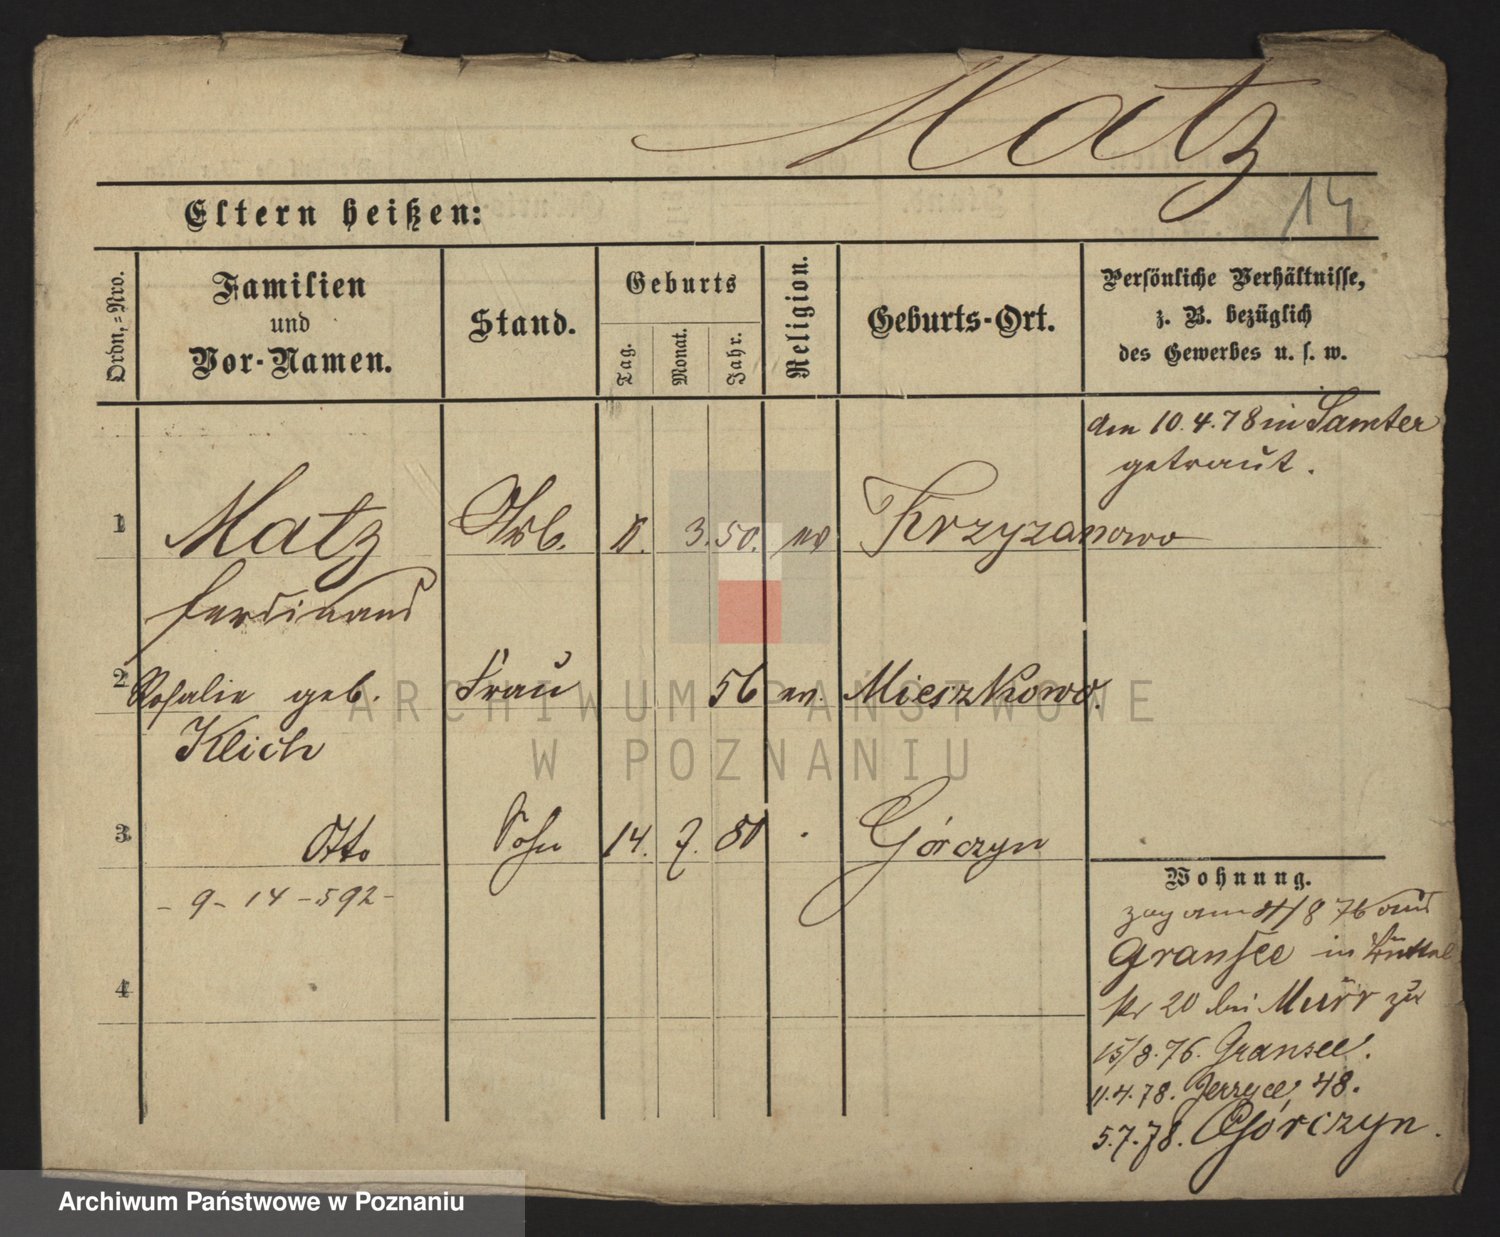 Matz
14
Eltern heißen:
Ordn.-Nro.
Familien
und
Vor-Namen.
Stand.
Geburts
Tag.
Monat.
Jahr.
Religion.
Geburts-Ort.
Persönliche Verhältnisse,
z. B. bezüglich
des Gewerbes u. s. w.
den 10.4.78 in Samter
getraut.
1 Matz Arb. 3. 50. ev Krzyzanowo
Ferdinand
2 Rosalie geb. Frau 56 ev. Mieszkowo.
Klich
3 Otto Sohn 14. 7. 80 Górczyn
- 9 - 14 - 592 -
4
Wohnung.
zog am /8 76 aus
Gransee in
20 bei Murr zu
15/8.76. Gransee.
11.4.78. Jerzyce, 48.
5.7.78. Górczyn.
ARCHIWUM PAŃSTWOWE
W POZNANIU
Archiwum Państwowe w Poznaniu